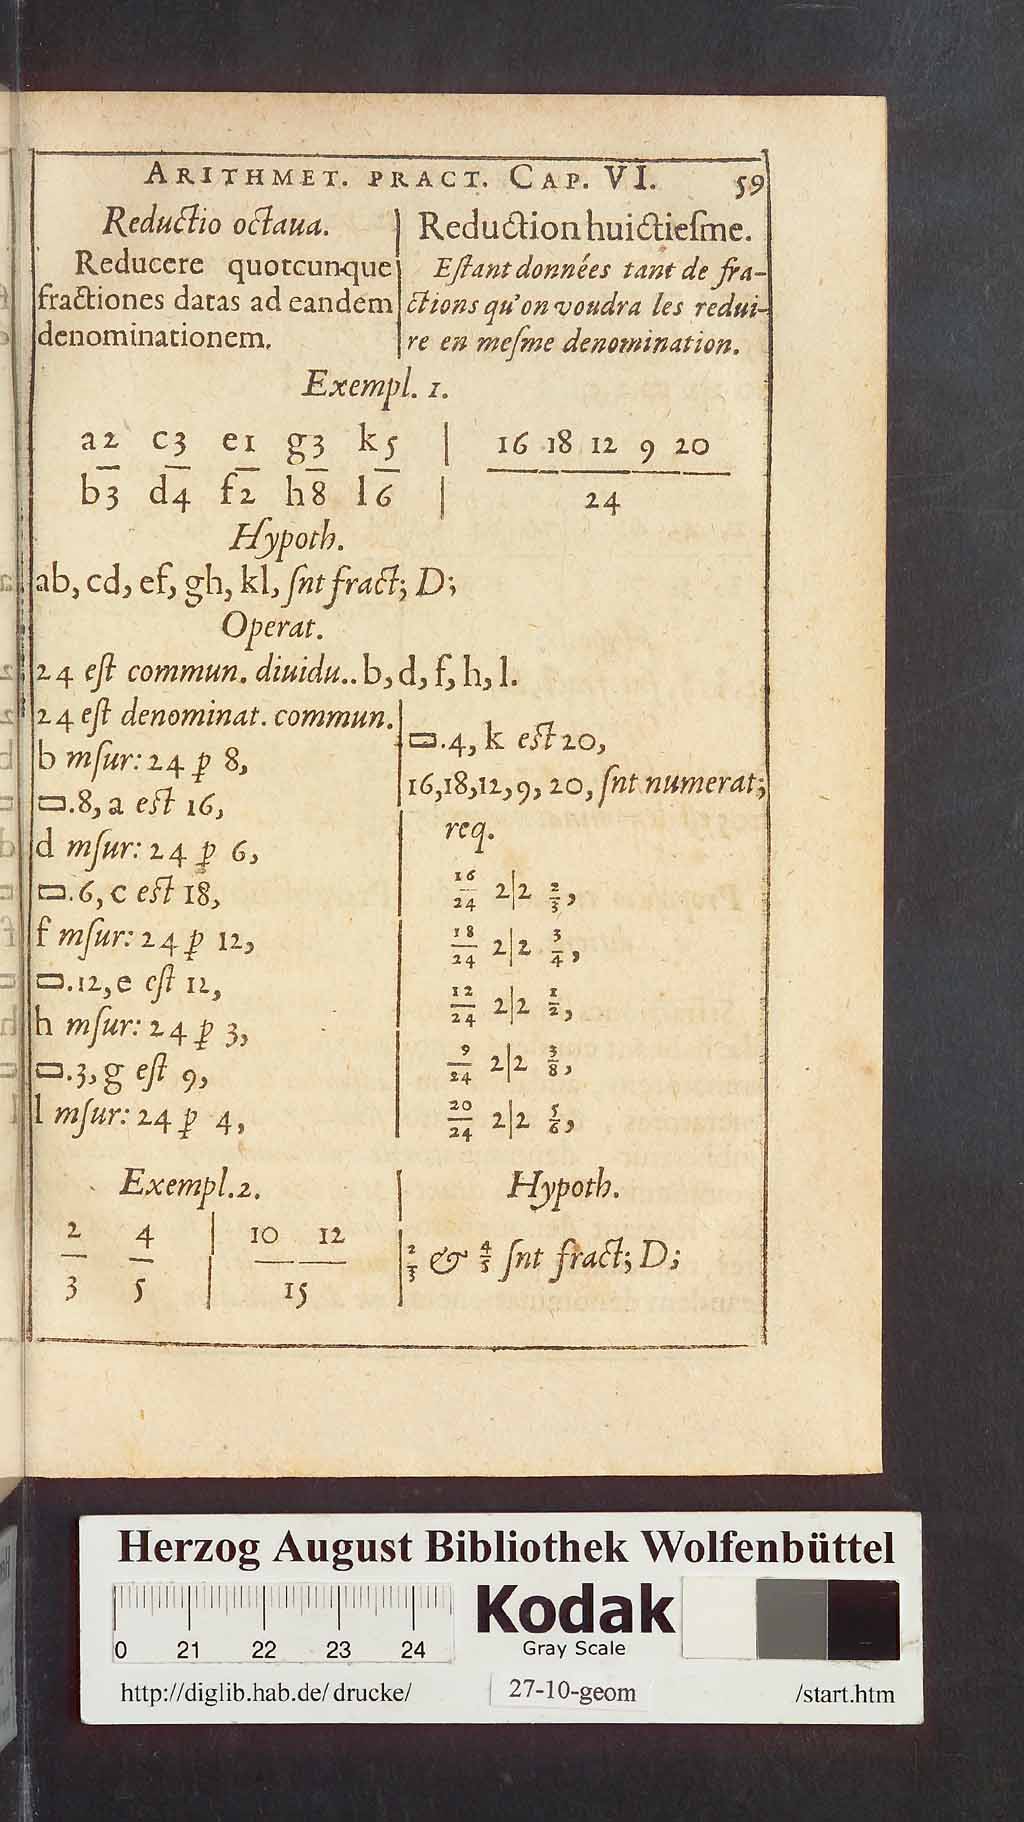 ARITHMET. PRACT. CAP. VI. 59
Reductio octaua.
Reducere quotcunque
fractiones datas ad eandem
denominationem.
Reduction huictiesme.
Eſtant données tant de fra-
ctions qu'on voudra les redui-
re en meſme denomination.
Exempl. 1.
a2 c3 e1 g3 k5 | 16 18 12 9 20
b3 d4 f2 h8 l6 | 24
Hypoth.
ab, cd, ef, gh, kl, ſnt fract; D;
Operat.
24 eſt commun. diuidu.. b, d, f, h, l.
24 eſt denominat. commun.
b mſur: 24 ꝑ 8,
▭.8, a eſt 16,
d mſur: 24 ꝑ 6,
▭.6, c eſt 18,
f mſur: 24 ꝑ 12,
▭.12, e eſt 12,
h mſur: 24 ꝑ 3,
▭.3, g eſt 9,
l mſur: 24 ꝑ 4,
▭.4, k eſt 20,
16, 18, 12, 9, 20, ſnt numerat;
req.
16/24 2|2 2/3,
18/24 2|2 3/4,
12/24 2|2 1/2,
9/24 2|2 3/8,
20/24 2|2 5/6,
Exempl. 2.
2 4 | 10 12
3 5 | 15
Hypoth.
2/3 & 4/5 ſnt fract; D;
Herzog August Bibliothek Wolfenbüttel
0 21 22 23 24
Kodak
Gray Scale
http://diglib.hab.de/drucke/ 27-10-geom /start.htm